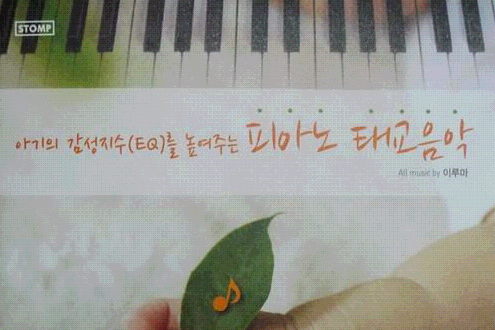 STOMP
아기의 감성지수(EQ)를 높여주는 피아노 태교음악
All music by 이루마